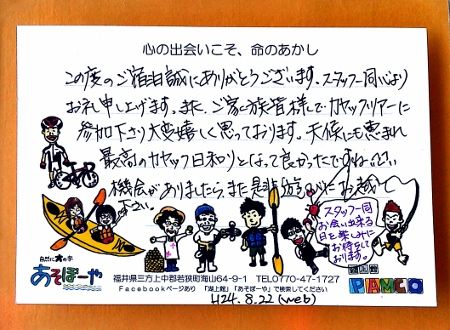 心の出会いこそ、命のあかし
この度のご宿泊誠にありがとうございます。スタッフ一同心より
お礼申し上げます。また、ご家族皆様でカヤックツアーに
参加下さり大変嬉しく思っております。天候にも恵まれ
最高のカヤック日和りとなって良かったですね。
機会がありましたらまた是非遊びにお越し
下さい。
スタッフ一同
お会い出来る
日を楽しみに
お待ちして
おります。
自然に大の字
あそぼーや
湖上館
PAMCO
福井県三方上中郡若狭町海山64-9-1 TEL0770-47-1727
Facebookページあり 「湖上館」「あそぼーや」で検索してください
H24.8.22(web)